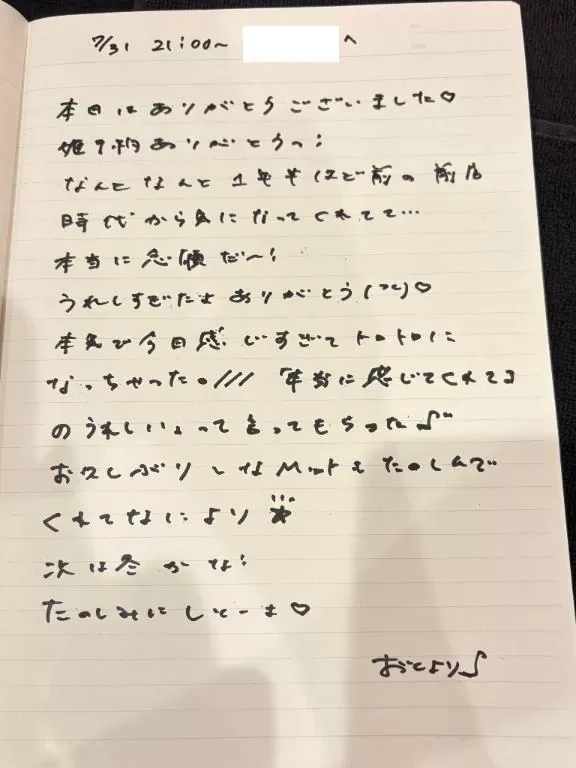 7/31 21:00~ へ
本日はありがとうございました♡
姫予約ありがとうっ!
なんとなんと1年半ほど前の前店
時代から気になってくれてて…
本当に念願だ〜!
うれしすぎたよありがとう(つω)♡
本気で今日感じすぎてトロトロに
なっちゃった。///「本当に感じてくれてる
のうれしい」って言ってもらった♪
お久しぶりしなMットもたのしんで
くれてなにより☆
次は冬かな!
たのしみにしとーよ♡
おとより♪